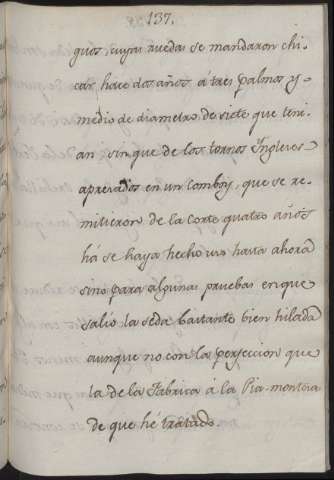 137.
guos, cuyas ruedas se mandaron chi-
car hàce dos años a tres palmos y
medio de diametro, de siete que teni-
an sin que de los tornos Yngleses
apresados en un Comboy, que se re-
mitieron de la corte quatro años
há se haya hecho uso hasta ahora
sino para algunas pruebas en que
salio la seda bastante bien hilada
aunque no con la perfeccion que
la de la Fabrica á la Pia-montesa
de que hé tratado.